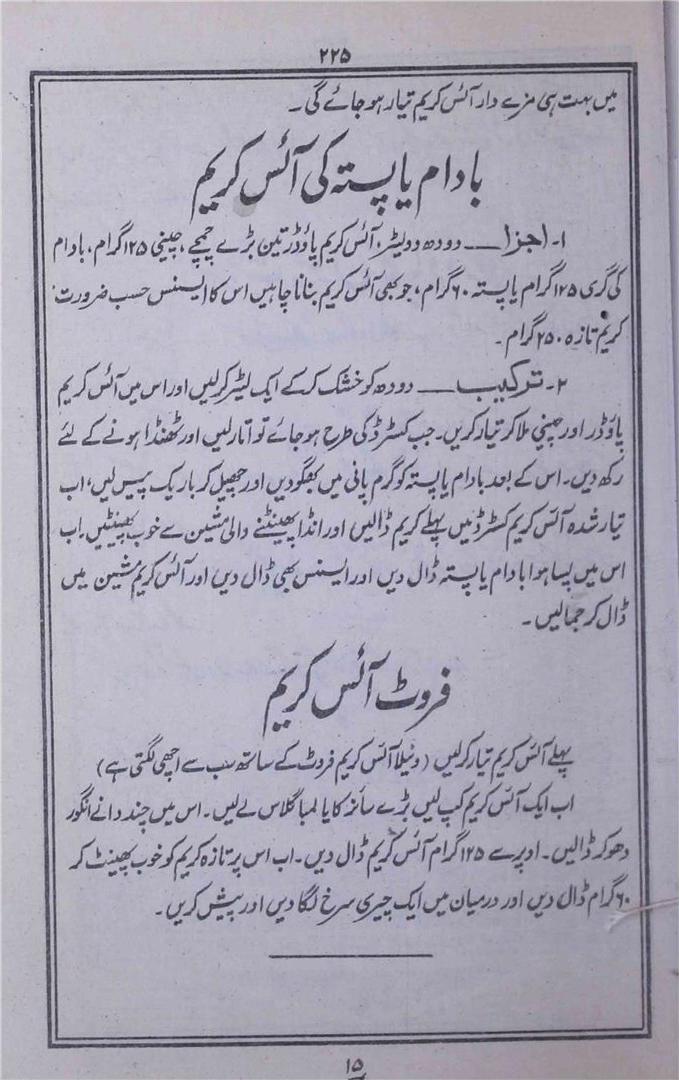 ۲۲۵
میں بہت ہی مزے دار آئس کریم تیار ہو جائے گی۔
بادام یا پستہ کی آئس کریم
۱۔ اجزا ــــ دودھ دو لیٹر، آئس کریم پاؤڈر تین بڑے چمچے، چینی ۱۲۵ گرام، بادام
کی گری ۱۲۵ گرام یا پستہ ۶۰ گرام، جو بھی آئس کریم بنانا چاہیں اس کا ایسنس حسب ضرورت،
کریم تازہ ۲۵۰ گرام۔
۲۔ ترکیب ــــ دودھ کو خشک کر کے ایک لیٹر کرلیں اور اس میں آئس کریم
پاؤڈر اور چینی ملا کر تیار کریں۔ جب کسٹرڈ کی طرح ہو جائے تو اتار لیں اور ٹھنڈا ہونے کے لئے
رکھ دیں۔ اس کے بعد بادام یا پستہ کو گرم پانی میں بھگو دیں اور چھیل کر باریک پیس لیں، اب
تیار شدہ آئس کریم کسٹرڈ میں پہلے کریم ڈالیں اور انڈا پھینٹنے والی مشین سے خوب پھینٹیں۔ اب
اس میں پسا ہوا بادام یا پستہ ڈال دیں اور ایسنس بھی ڈال دیں اور آئس کریم مشین میں
ڈال کر جمالیں۔
فروٹ آئس کریم
پہلے آئس کریم تیار کرلیں (ونیلا آئس کریم فروٹ کے ساتھ سب سے اچھی لگتی ہے)
اب ایک آئس کریم کپ لیں بڑے سائز کا یا لمبا گلاس لے لیں۔ اس میں چند دانے انگور
دھو کر ڈالیں۔ اوپر سے ۱۲۵ گرام آئس کریم ڈال دیں۔ اب اس پر تازہ کریم کو خوب پھینٹ کر
۶۰ گرام ڈال دیں اور درمیان میں ایک چیری سرخ لگا دیں اور پیش کریں۔
۱۵